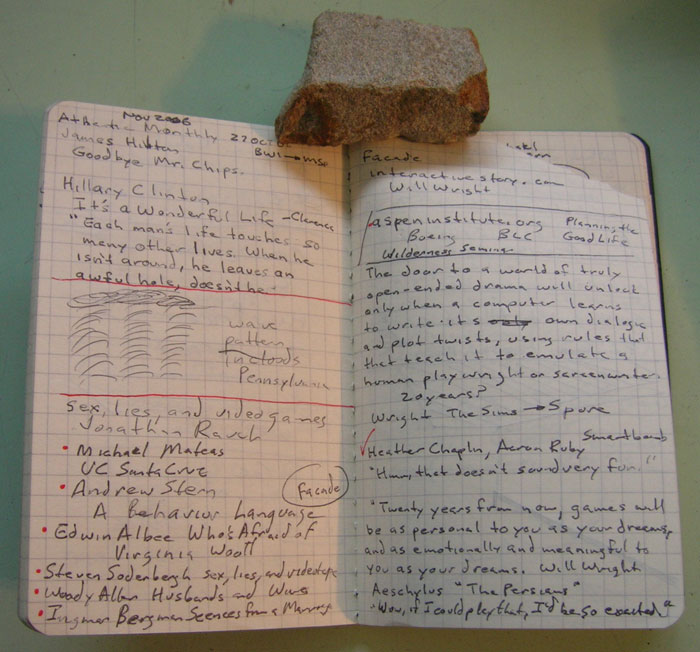 Nov 2006
Athantic Monthly 22 Oct
James Hilton BWI → MSP
Goodbye Mr. Chips.
Hillary Clinton
It's a Wonderful Life - Clarence
"Each man's life touches so
many other lives. When he
isn't around, he leaves an
awful hole, doesn't he
wave
pattern
in clouds
Pennsylvania
Sex, lies, and videogames
Jonathan Rauch
• Michael Mateas
UC Santa Cruz
• Andrew Stern
Facade
A Behavior Language
• Edwin Albee Who's Afraid of
Virginia Woolf
• Steven Soderbergh sex, lies, and videotape
• Woody Allen Husbands and Wives
• Ingmar Bergman Scences from a Marriage
Facade
interactivestory.com
Will Wright
aspeninstitute.org Planning the
Boeing BLC Good Life
Wilderness Seminar
The door to a world of truly
open-ended drama will unlock
only when a computer learns
to write its only own dialogue
and plot twists, using rules that
that teach it to emulate a
human playwright or screenwriter.
20 years?
Wright The Sims → Spore
Smartbomb
Heather Chaplin, Aaron Ruby
"Hmm, that doesn't sound very fun."
"Twenty years from now, games will
be as personal to you as your dreams,
and as emotionally and meaningful to
you as your dreams. Will Wright
Aeschylus "The Persians"
"Wow, if I could play that, I'd be so excited."